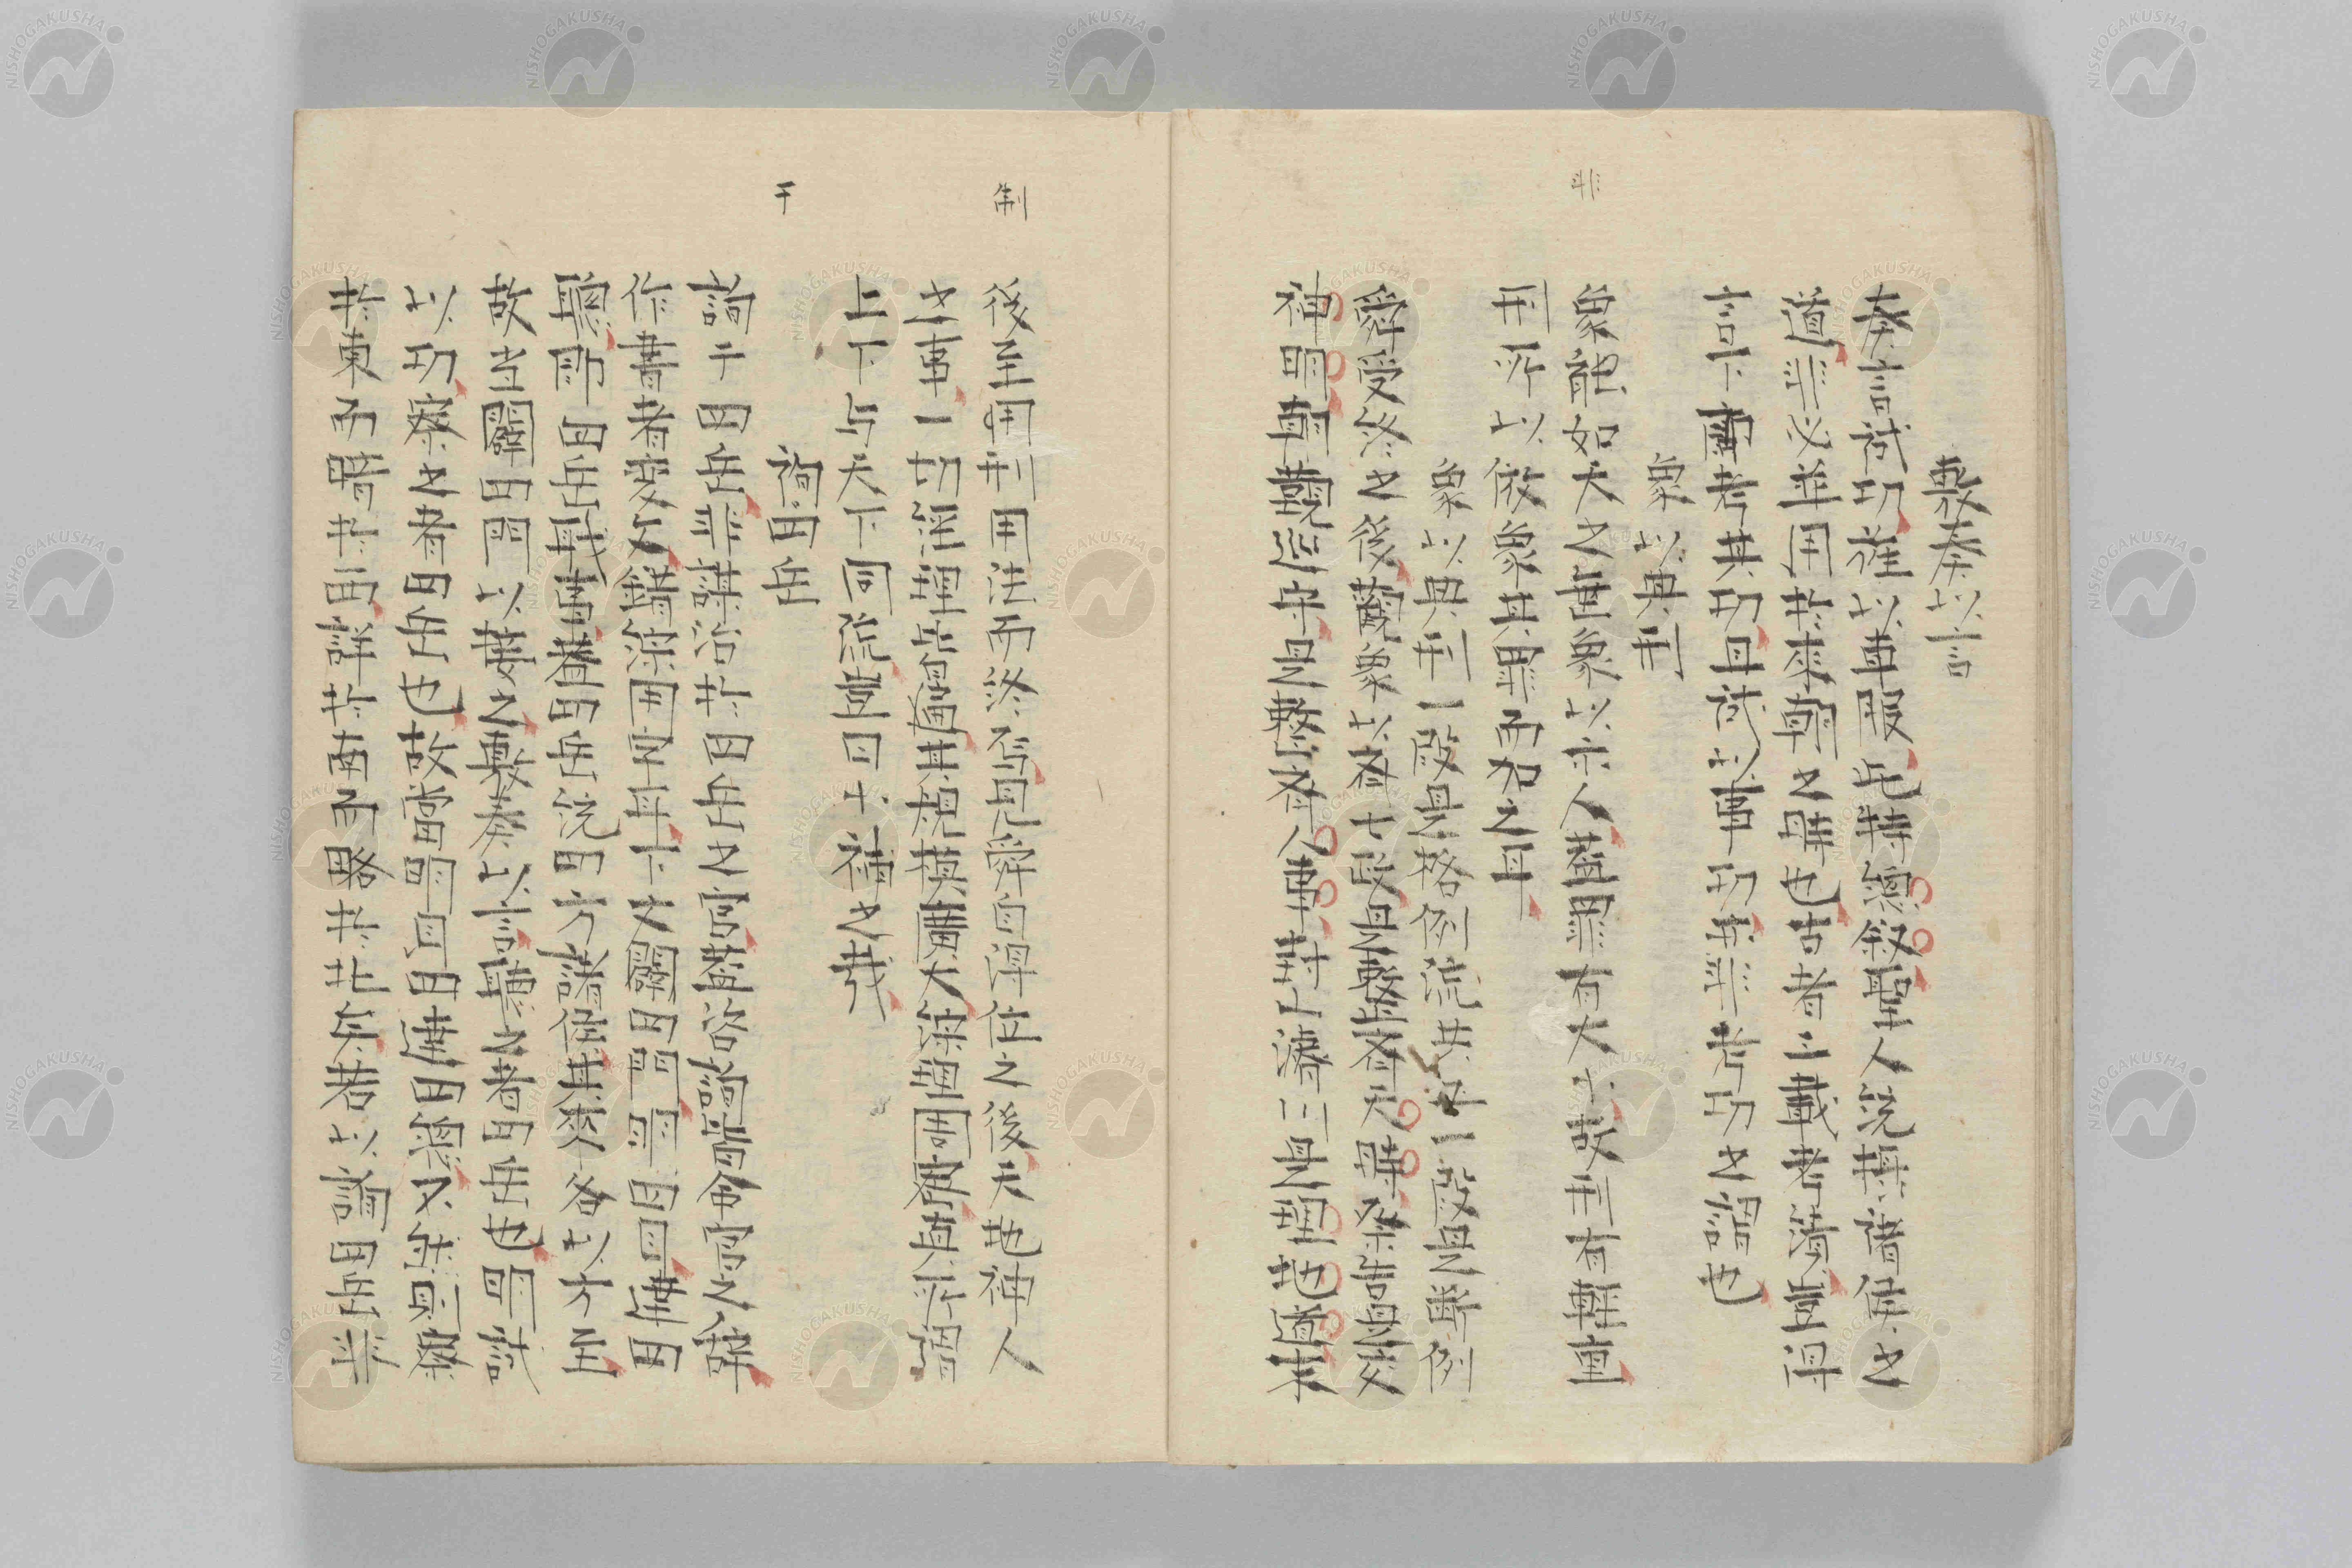 非
敷奏以言
奏言試功雖以車服也轉換叙聖人説択諸侯之
道非必並用於來朝之時也古者三載考績豈得
言下需考其功且試以事功耳非考功之謂也
象以典刑
象記如天之垂象以示人蓋罪有大小故刑有軽重
刑所以倣象其罪而名之耳
象以典刑一段是格例流共工一段是断例
舜受終之後観象以斉七政是整斉天時祭告是交
神明朝覲巡守是整斉人事封山濬川是理地道末
制
後至用刑用法而終焉見舜自得位之後天地神人
之事一切経理岳曾遍其規模広大条理周密真所謂
上下与天下同流豈曰小補之哉
干
詢四岳
詢于四岳非謀治於四岳之官蓋咨詢皆命官之辞
作書者変文錯綜因字耳下文闢四門明四目達四
聰即四岳職事蓋四岳説四方諸侯其来各以方岳
故当闢四門以賓之敷奏以言聽之者四岳也明試
以功察之者四岳也故當明目四達四聰不然則察
於東而暗於西詳於南而略於北矣若以詢四岳非